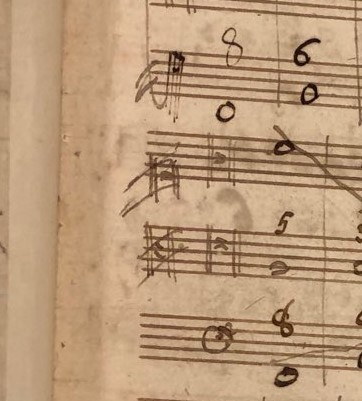 8 6
5
8